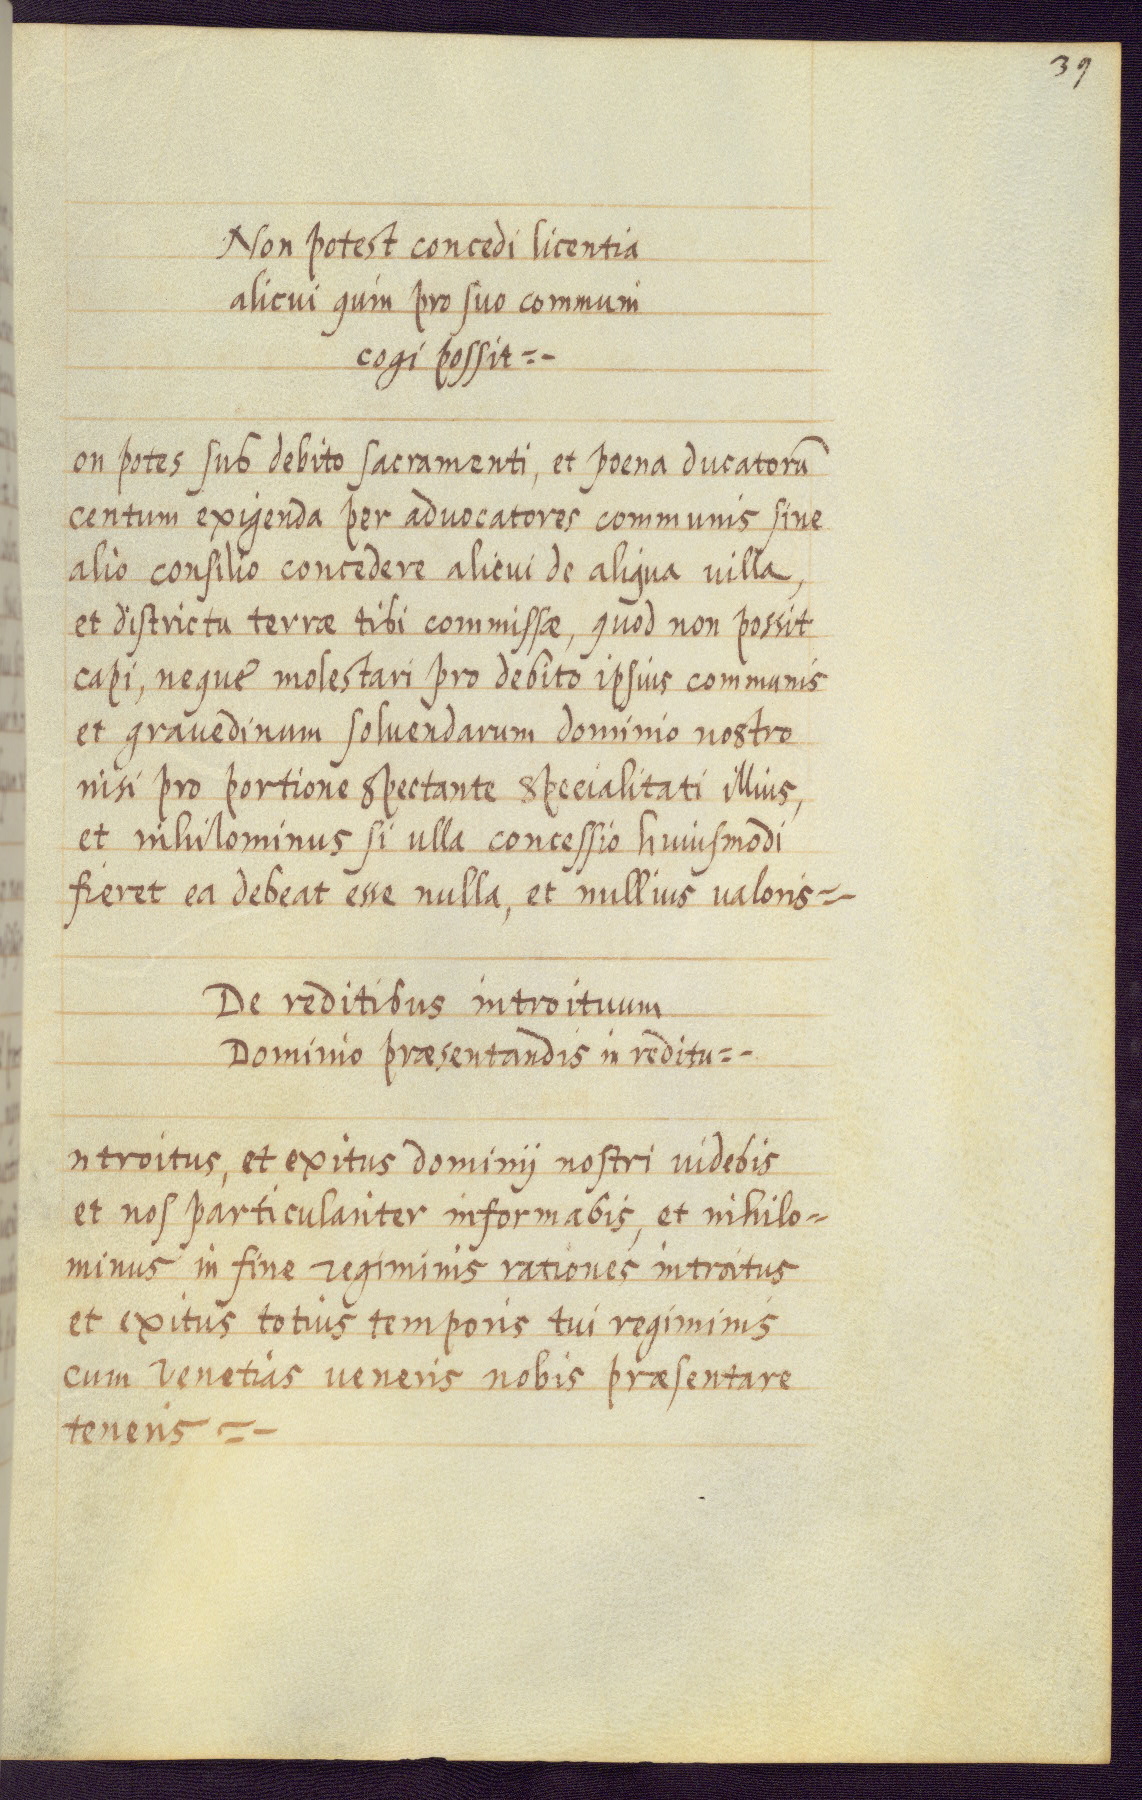 39
Non potest concedi licentia
alicui quin pro suo communi
cogi possit =-
on potes sub debito sacramenti, et poena ducatorū
centum exigenda per advocatores communis sine
alio consilio concedere alicui de aliqua villa,
et districtu terræ tibi commissæ, quod non possit
capi, neque molestari pro debito ipsius communis
et gravedinum soluendarum dominio nostro
nisi pro portione spectante specialitati illius,
et nihilominus si ulla concessio huiusmodi
fieret ea debeat esse nulla, et nullius valoris =-
De reditibus introituum
Dominio præsentandis in reditu =-
ntroitus, et exitus dominij nostri videbis
et nos particulariter informabis, et nihilo=
minus in fine regiminis rationes introitus
et exitus totius temporis tui regiminis
cum Venetias veneris nobis præsentare
teneris =-